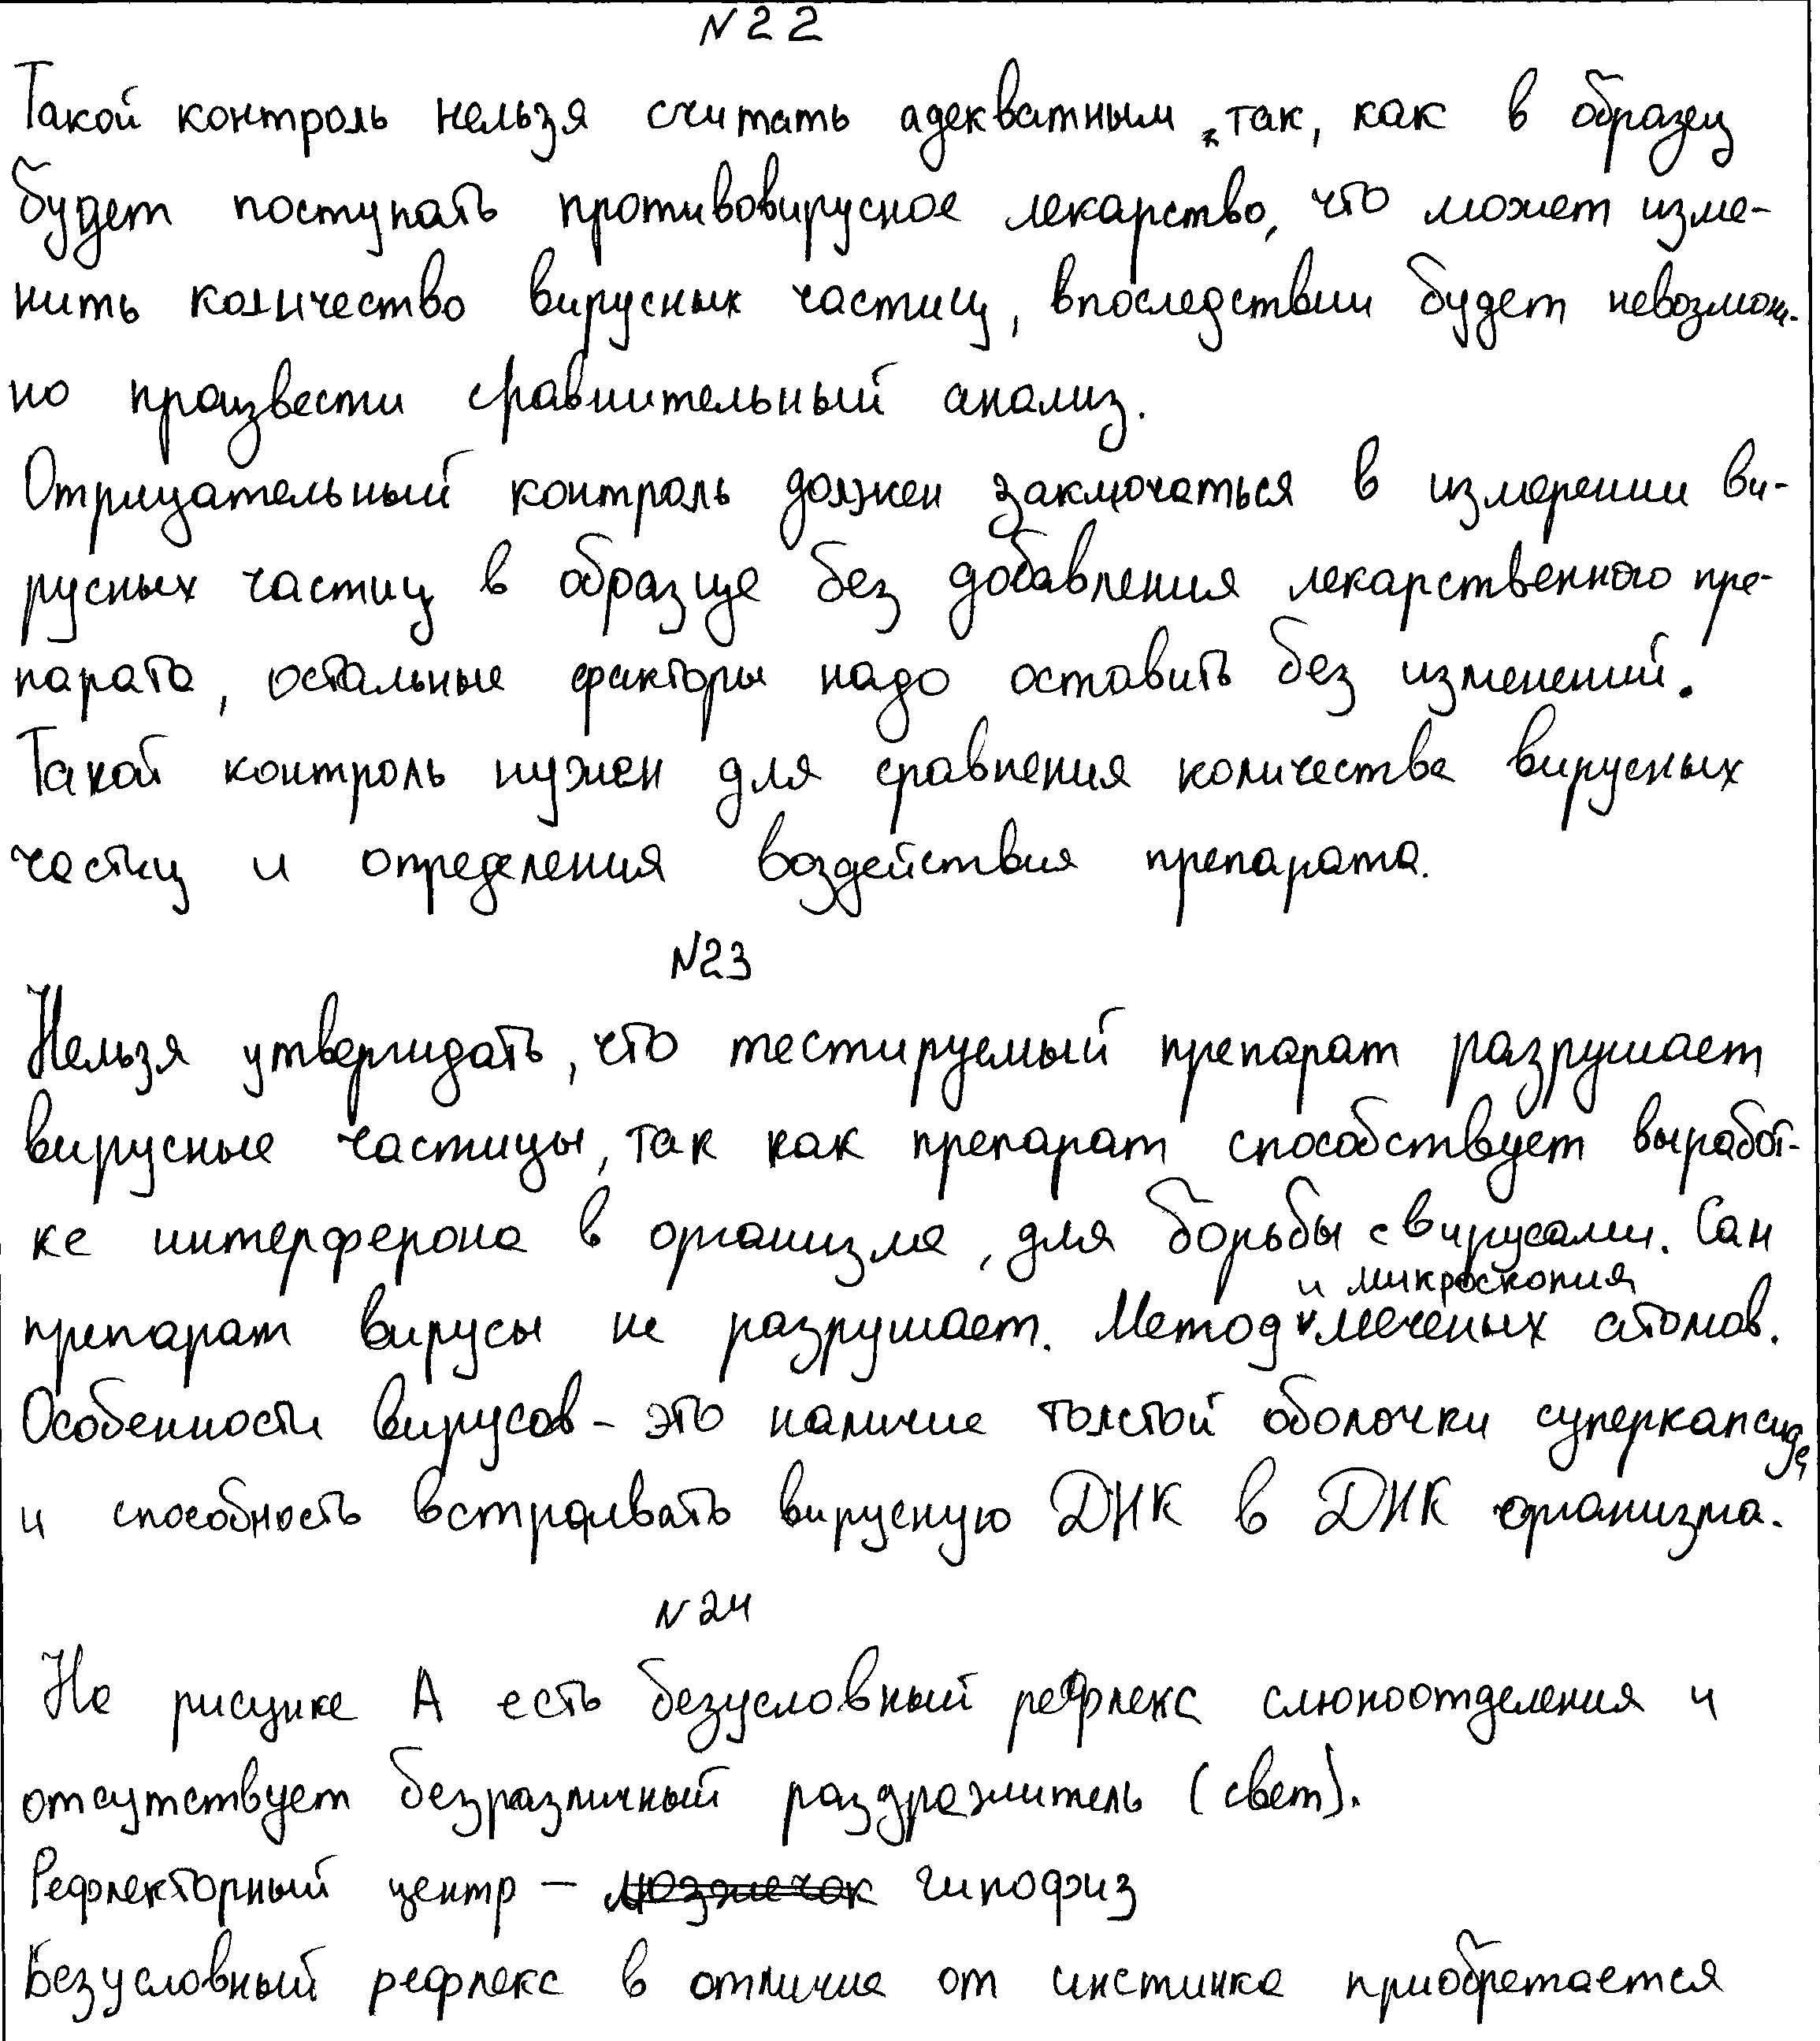 N22
Такой контроль нельзя считать адекватным, так, как в образец
будет поступать противовирусное лекарство, что может изме-
нить количество вирусных частиц, впоследствии будет невозмож-
но произвести сравнительный анализ.
Отрицательный контроль должен заключаться в измерении ви-
русных частиц в образце без добавления лекарственного пре-
парата, остальные факторы надо оставить без изменений.
Такой контроль нужен для сравнения количества вирусных
частиц и определения воздействия препарата.
N23
Нельзя утверждать, что тестируемый препарат разрушает
вирусные частицы, так как препарат способствует выработ-
ке интерферона в организме, для борьбы с вирусами. Сам
и микроскопия
препарат вирусы не разрушает. Метод меченых атомов.
Особенности вирусов - это наличие толстой оболочки суперкапсида
и способность встраивать вирусную ДНК в ДНК организма.
N24
На рисунке А есть безусловный рефлекс слюноотделения и
отсутствует безразличный раздражитель (свет).
Рефлекторный центр - мозжечок гипофиз
Безусловный рефлекс в отличие от инстинка приобретается